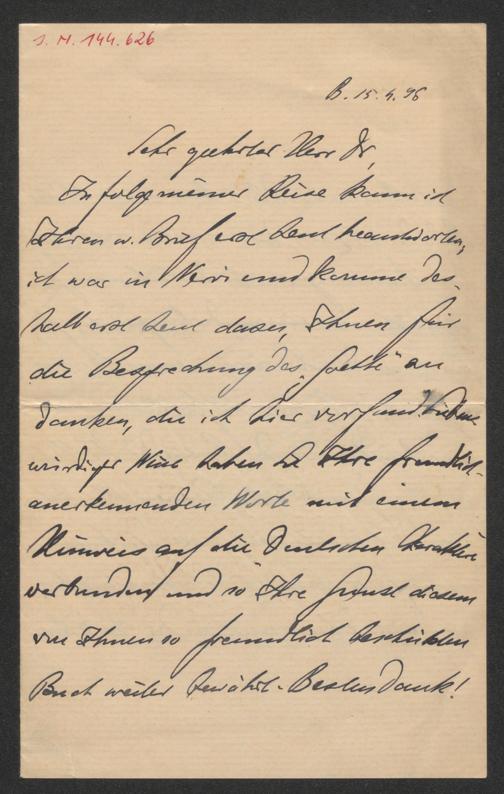 J. N. 144.626
B. 15.4.96
Sehr geehrter Herr Dr,
In folge meiner Reise kann ich
Ihren w. Brief erst heut beantworten,
ich war in Nervi und komme des
halb erst heut dazu, Ihnen für
die Besprechung des „Goethe" zu
danken, die ich hier vorfand. Liebens
würdiger Weise haben Sie Ihre freundlich-
anerkennenden Worte mit einem
Hinweis auf die Deutschen Charaktere
verbunden und so Ihre Gunst diesem
von Ihnen so freundlich beschützten
Buch weiter bewährt. Besten Dank!